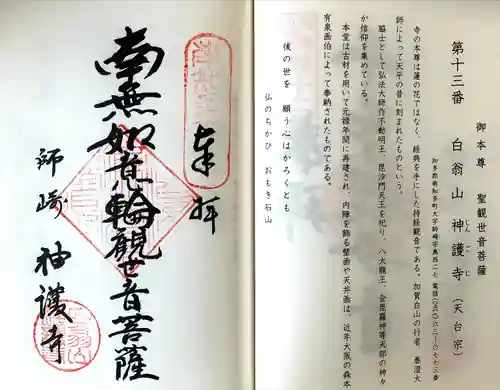 第十三番　白翁山　神護寺（天台宗）
じんごじ
御本尊　聖観世音菩薩
知多郡南知多町大字師崎字鳥西二七　電話（〇五六九）六三―〇七七三番
寺の本尊は蓮の花ではなく、経典を手にした持経観音である。加賀白山の行者、泰澄大
師によって天平の昔に刻まれたものという。
脇士として弘法大師作不動明王、毘沙門天王を祀り、八大龍王、金毘羅神等天部の神々
が信仰を集めている。
本堂は古材を用いて元禄年間に再建され、内陣を飾る壁画や天井画は、近年大阪の森本
有泉画伯によって奉納されたものである。
後の世を　願う心はかろくとも
仏のちかひ　おもき石山
奉拝
南無如意輪観世音菩薩
師崎　神護寺